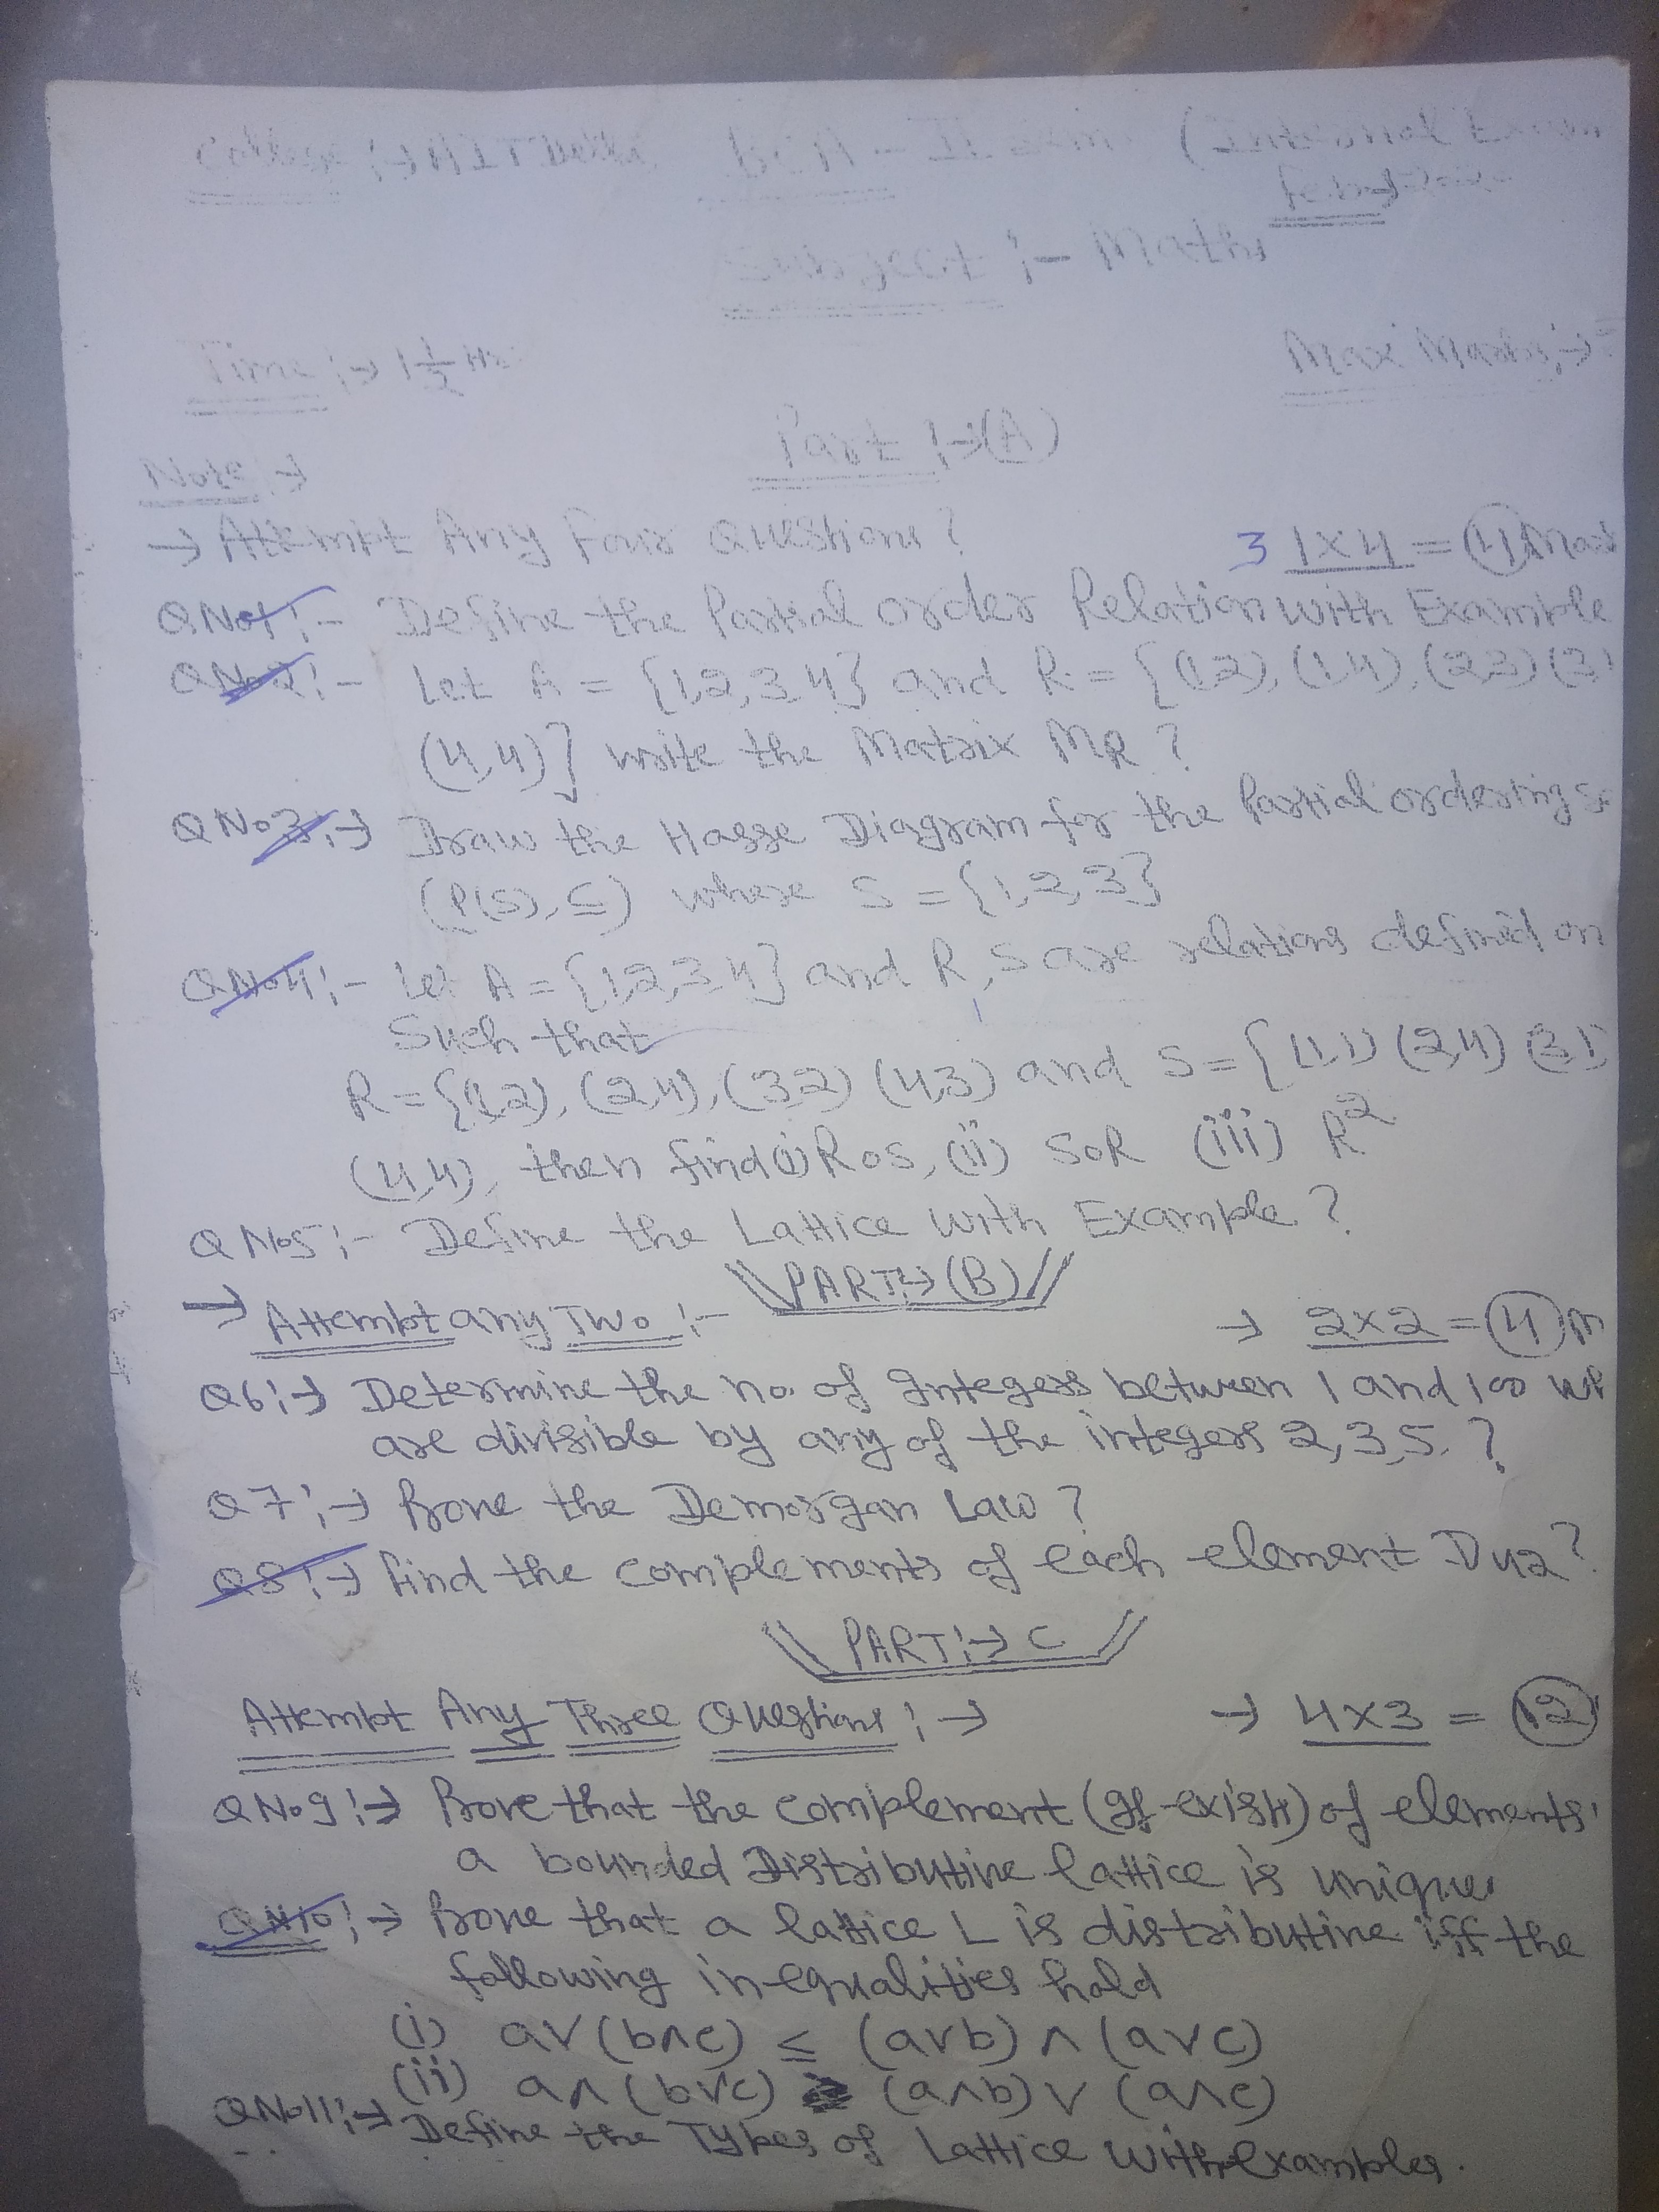 College :→ BCA - II (Internal Exam
Feb
Subject :- Maths
Time :→ 1 1/2 Hr
Max Marks :→
Part :→ (A)
Note :→
→ Attempt Any Four Questions ? 3 1×4 = (4) Mar
QNo1 :- Define the Partial order Relation with Example
QNo2 :- Let A = {1,2,3,4} and R = {(1,2), (1,4), (2,3) (3,
(4,4)} write the Matrix MR ?
QNo3 :→ Draw the Hasse Diagram for the Partial ordering s
(P(S), ⊆) where S = {1,2,3}
QNo4 :- Let A = {1,2,3,4} and R, S are relations defined on
Such that
R = {(1,2), (2,4), (3,2) (4,3) and S = {(1,1) (2,4) (3,1)
(4,4), then find (i) RoS, (ii) SoR (iii) R²
QNo5 :- Define the Lattice with Example ?
PART :→ (B)
→ Attempt any Two :- → 2×2 = (4) M
Q6 :→ Determine the no. of Integers between 1 and 100 wh
are divisible by any of the integers 2,3,5. ?
Q7 :→ Prove the Demorgan Law ?
Q8 :→ find the complements of each element D42 ?
PART :→ C
Attempt Any Three Questions :→ → 4×3 = (12)
QNo9 :→ Prove that the complement (If exist) of elements
a bounded Distributive lattice is unique.
QN10 :→ Prove that a lattice L is distributive iff the
following inequalities hold
(i) a∨(b∧c) ≤ (a∨b) ∧ (a∨c)
(ii) a∧(b∨c) ≥ (a∧b) ∨ (a∧c)
QNo11 :→ Define the Types of Lattice with Examples.